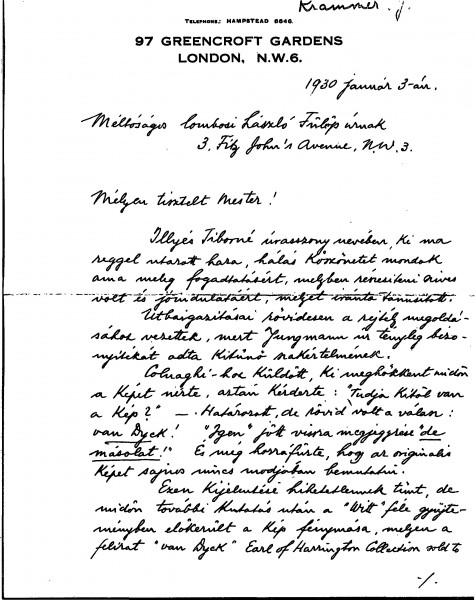 Krammer. J.
TELEPHONE: HAMPSTEAD 6646.
97 GREENCROFT GARDENS
LONDON, N.W.6.
1930 január 3-án.
Méltóságos lombosi László Fülöp úrnak
3. Fitz John's Avenue, N.W. 3.
Mélyen tisztelt Mester!
Illyés Tiborné úrasszony nevében, Ki ma
reggel utazott haza, hálás Köszönetet mondok
ama meleg fogadtatásért, melyben részesíteni szíves
volt és jóindulatáért, melyet iránta tanusított.
Útbaigazításai rövidesen a rejtély megoldá-
sához vezettek, mert Jungmann úr tényleg bizo-
nyítékát adta Kitünő szakértelmének.
Colnaghi-hoz Küldött, Ki meghökkent midőn
a Képet nézte, aztán Kérdezte: "Tudja Kitől van
a Kép?" —. Határozott, de rövid volt a válasz:
van Dyck! "Igen" jött vissza megjegyzése "de
másolat!" És még hozzáfűzte, hogy az originális
Képet sajnos nincs módjában bemutatni.
Ezen Kijelentése hihetetlennek tünt, de
midőn további Kutatás után a "Witt" féle gyüjte-
ményben előkerült a Kép fénymása, melyen a
felirat "van Dyck" Earl of Harrington Collection sold to
-/.